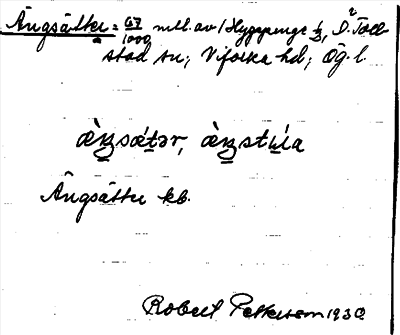 Ängsätter = 67/1000 mtl. av 1 Hyggpenge 1/3, D. Toll-
stad sn; Vifolka hd; Ög. l.
ä̀ŋsǽtər, ä̀ŋstúa
Ängsätter kb.
Robert Pettersson 1930